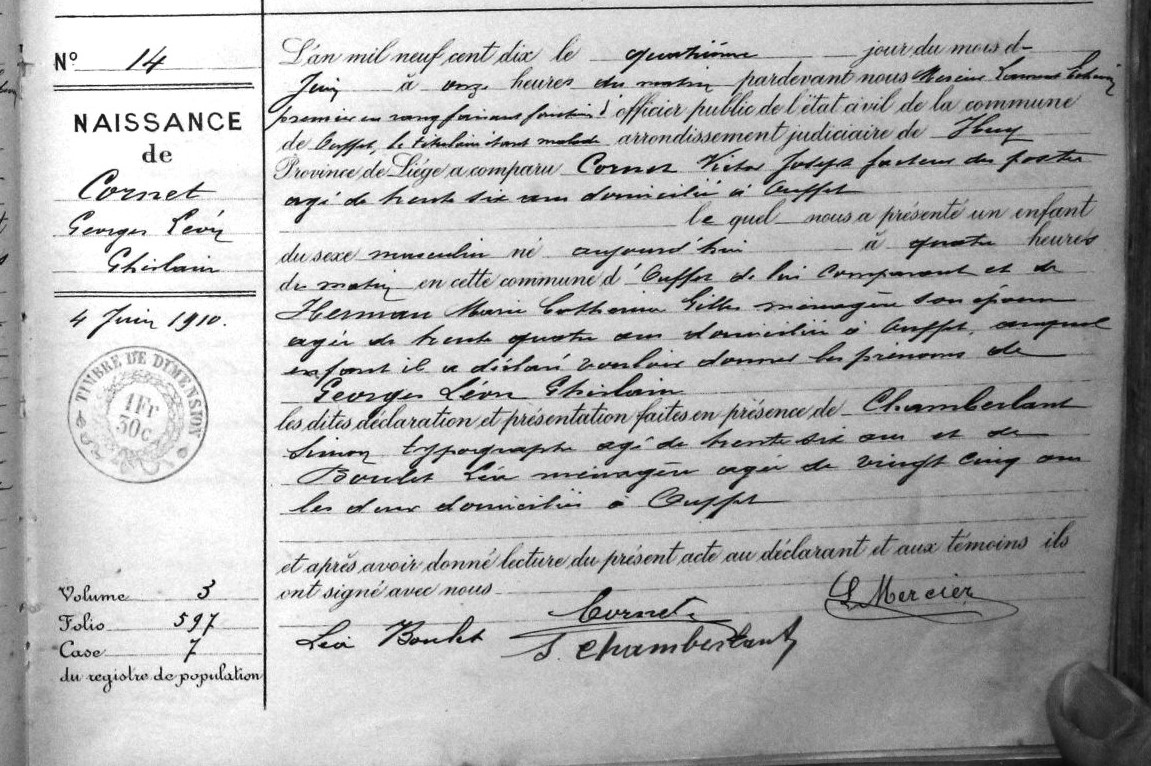 N° 14
NAISSANCE
de
Cornet
Georges Léon
Ghislain
4 Juin 1910.
TIMBRE DE DIMENSION
1Fr
30c
Volume 3
Folio 597
Case 7
du registre de population
L'an mil neuf cent dix le quatrième jour du mois d-
Juin à onze heures du matin pardevant nous Mercier Laurent Echevin
premier en rang faisant fonctions d'officier public de l'état civil de la commune
de Ouffet, le titulaire étant malade arrondissement judiciaire de Huy
Province de Liége a comparu Cornet Victor Joseph facteur des postes
agé de trente six ans domicilié à Ouffet
le quel nous a présenté un enfant
du sexe masculin né aujourd'hui à quatre heures
du matin en cette commune d'Ouffet de lui comparant et de
Herman Marie Catherine Gilles ménagère son épouse
agée de trente quatre ans domiciliée à Ouffet, auquel
enfant il a déclaré vouloir donner les prénoms de
Georges Léon Ghislain
les dites déclaration et présentation faites en présence de Chamberlant
Simon typographe agé de trente six ans et de
Boulet Léa ménagère agée de vingt cinq ans
les deux domiciliés à Ouffet
et après avoir donné lecture du présent acte au déclarant et aux témoins ils
ont signé avec nous
L Mercier
Cornet
Léa Boulet
S. Chamberlant